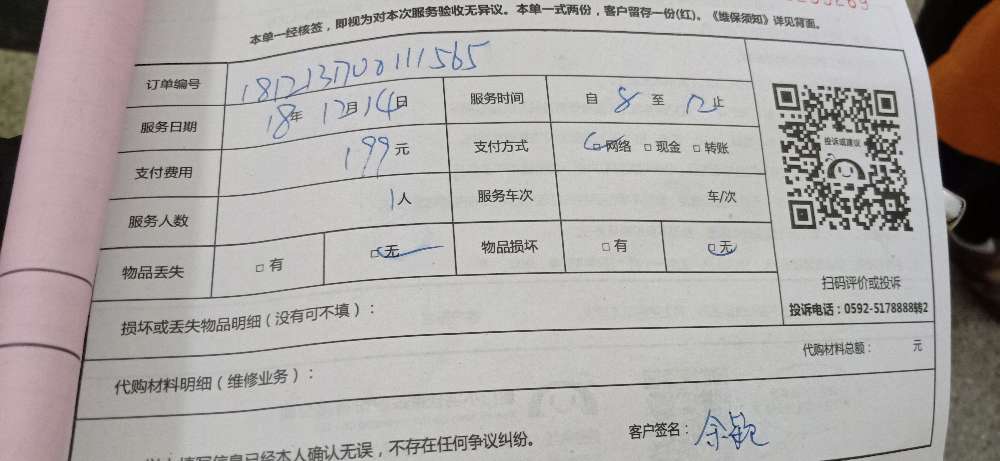 本单一经核签，即视为对本次服务验收无异议。本单一式两份，客户留存一份(红)。《维保须知》详见背面。
订单编号 181213700111565
服务日期 18年 12月 14日 服务时间 自 8 至 12 止
支付费用 199 元 支付方式 网络 □ 现金 □ 转账
服务人数 1 人 服务车次 车/次
物品丢失 □ 有 □ 无 物品损坏 □ 有 □ 无
投诉或建议
扫码评价或投诉
投诉电话：0592-5178888转2
损坏或丢失物品明细（没有可不填）：
代购材料明细（维修业务）： 代购材料总额： 元
填写信息已经本人确认无误，不存在任何争议纠纷。 客户签名：余颖